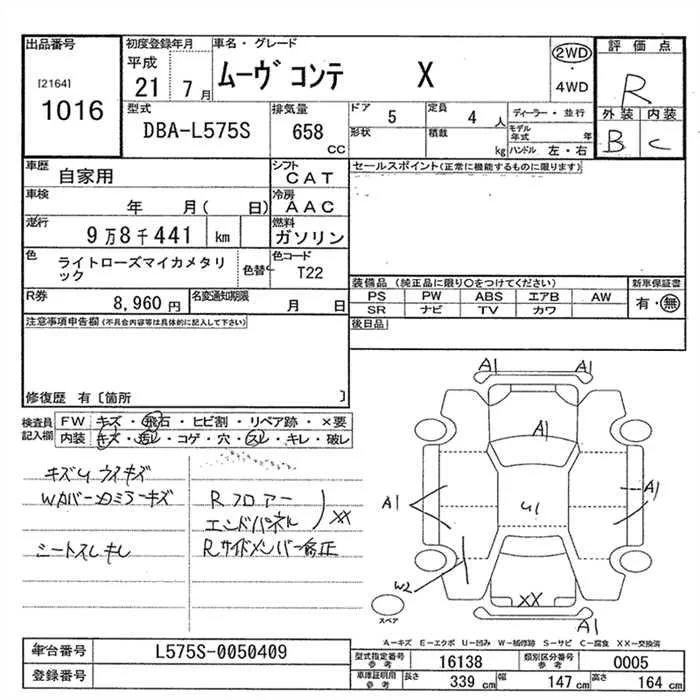 出品番号
[2164]
1016
初度登録年月
平成
21 7月
車名・グレード
ムーヴ コンテ X
2WD
・
4WD
評価点
R
外装 内装
B C
型式
DBA-L575S
排気量
658 CC
ドア 5
定員 4 人
形状
積載 kg
ディーラー・並行
モデル年式 年
ハンドル 左・右
車歴
自家用
シフト
CAT
車検
年 月( 日)
冷房
AAC
走行
9万8千441 km
燃料
ガソリン
色
ライトローズマイカメタリック
色替
色コード
T22
R券
8,960円
名変通知期限
月 日
セールスポイント(正常に機能するものに限ります)
装備品 (純正品に限り○をつけてください)
PS PW ABS エアB AW
SR ナビ TV カワ
新車保証書
有・無
後日品
注意事項申告欄(不具合内容等は具体的に記入して下さい)
修復歴 有〔箇所 〕
検査員記入欄
FW キズ・飛石・ヒビ割・リペア跡・×要
内装 キズ・汚レ・コゲ・穴・スレ・キレ・破レ
キズU ウスキズ
Wカバー カミラーキズ
シートスレ キレ
Rフロアー
エンドパネル XX
Rサイドメンバー修正
A1 A1
A1
A1 U1 A1
W2
XX
A1
スペア
A-キズ E-エクボ U-凹み W-補修跡 S-サビ C-腐食 XX-交換済
車台番号 L575S-0050409
登録番号
型式指定番号 参考 16138
類別区分番号 参考 0005
車庫証明用 参考
長さ 339 cm 幅 147 cm 高さ 164 cm